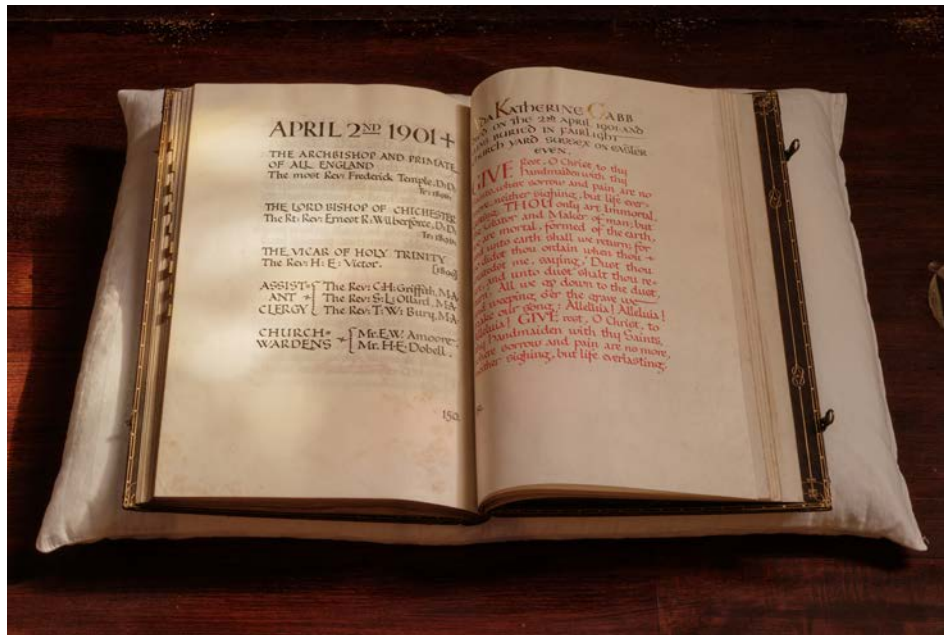 APRIL 2ND 1901+
THE ARCHBISHOP AND PRIMATE
OF ALL ENGLAND
The most Rev: Frederick Temple, D.D.
THE LORD BISHOP OF CHICHESTER
The Rt: Rev: Ernest R: Wilberforce, D.D.
THE VICAR OF HOLY TRINITY
The Rev: H: E: Victor. [1890]
ASSIST- The Rev: C:H: Griffith, M.A.
ANT The Rev: S:L: Ollard, M.A.
CLERGY The Rev: T: W: Bury, M.A.
CHURCH- Mr. E.W. Amoore.
WARDENS Mr. H.E. Dobell.
150.
KATHERINE CABB
ON THE 2nd APRIL 1901 AND
BURIED IN FAIRLIGHT
YARD SUSSEX ON EASTER
EVEN.
GIVE Rest, O Christ to thy
handmaiden with thy
where sorrow and pain are no
neither sighing, but life ever-
THOU only art Immortal,
and Maker of man; but
are mortal, formed of the earth,
unto earth shall we return; for
didst thou ordain when thou
me, saying, "Dust thou
and unto dust shalt thou re-
All we go down to the dust,
weeping o'er the grave we
our song: Alleluia! Alleluia!
GIVE rest, O Christ, to
handmaiden with thy Saints,
sorrow and pain are no more,
sighing, but life everlasting.